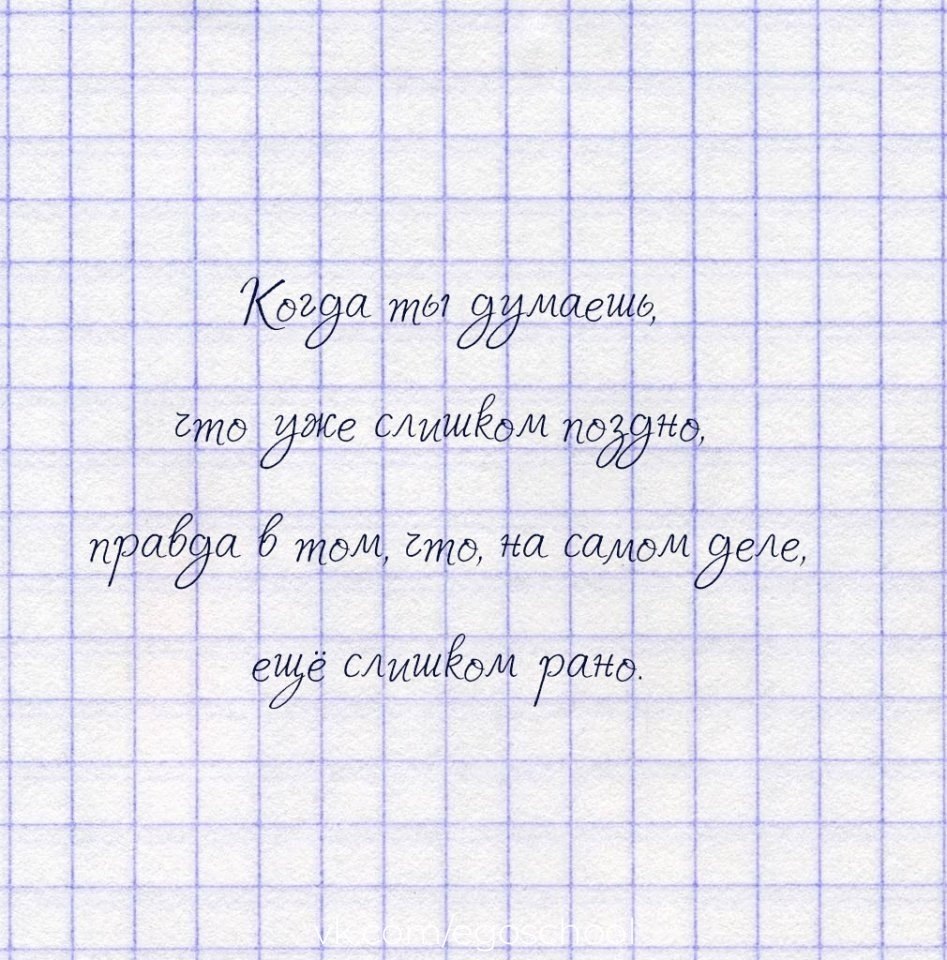 Когда ты думаешь,
что уже слишком поздно,
правда в том, что, на самом деле,
ещё слишком рано.
vk.com/egoschool